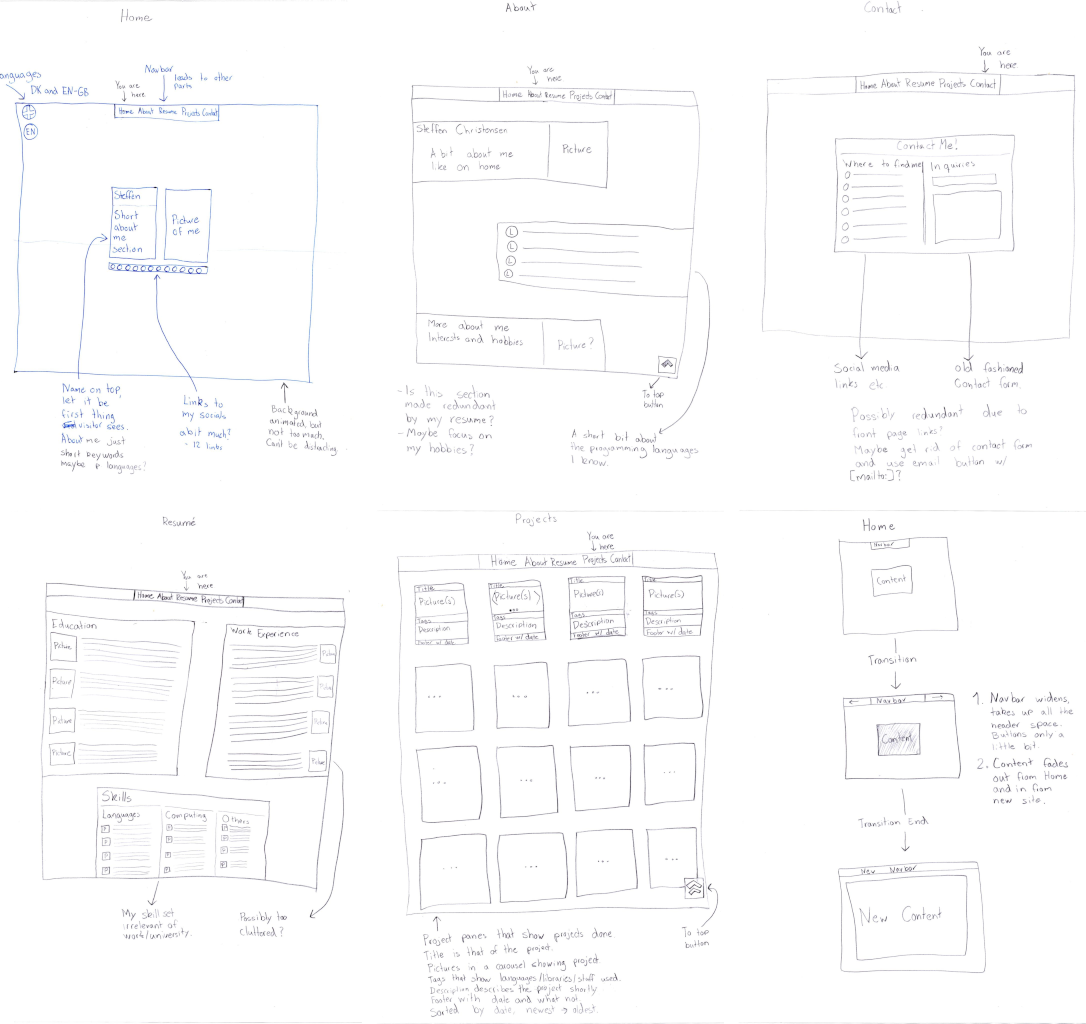 Home
Languages
DK and EN-GB
You are
here
Navbar
leads to other
parts
Home About Resume Projects Contact
EN
Steffen
Short
about
me
section
Picture
of me
Name on top,
let it be
first thing
visitor sees.
About me just
short keywords
maybe languages?
Links to
my socials
abit much?
~ 12 links
Background
animated, but
not too much,
Can't be distracting.
About
You are
here
Home About Resume Projects Contact
Steffen Christensen
A bit about me
like on home
Picture
L
L
L
L
More about me
Interests and hobbies
Picture?
To top
button
- Is this section
made redundant
by my resume?
- Maybe focus on
my hobbies?
A short bit about
the programming languages
I know.
Contact
You are
here
Home About Resume Projects Contact
Contact Me!
Where to find me
Inquiries
Social media
links etc
old fashioned
Contact form.
Possibly redundant due to
front page links?
Maybe get rid of contact form
and use email button w/
[mailto:]?
Resumé
You are
here
Home About Resume Projects Contact
Education
Picture
Picture
Picture
Picture
Work Experience
Picture
Picture
Picture
Picture
Skills
Languages
Computing
Others
P
P
P
P
P
P
P
P
P
P
P
P
My skill set
irrelevant of
work/university.
Possibly too
cluttered?
Projects
You are
here
Home About Resume Projects Contact
Title
Picture(s)
Tags
Description
Footer w/ date
Title
< Picture(s) >
...
Tags
Description
Footer w/ date
Title
Picture(s)
Tags
Description
Footer w/ date
Title
Picture(s)
Tags
Description
Footer w/ date
... ... ... ...
... ... ... ...
... ... ... ...
To top
button
Project panes that show projects done
Title is that of the project.
Pictures in a carousel showing project
Tags that show languages/libraries/stuff used.
Description describes the project shortly
Footer with date and what not.
Sorted by date, newest → oldest.
Home
Navbar
Content
Transition
← Navbar →
Content
1. Navbar widens,
takes up all the
header space.
Buttons only a
little bit.
2. Content fades
out from Home
and in from
new site.
Transition End
New Navbar
New Content